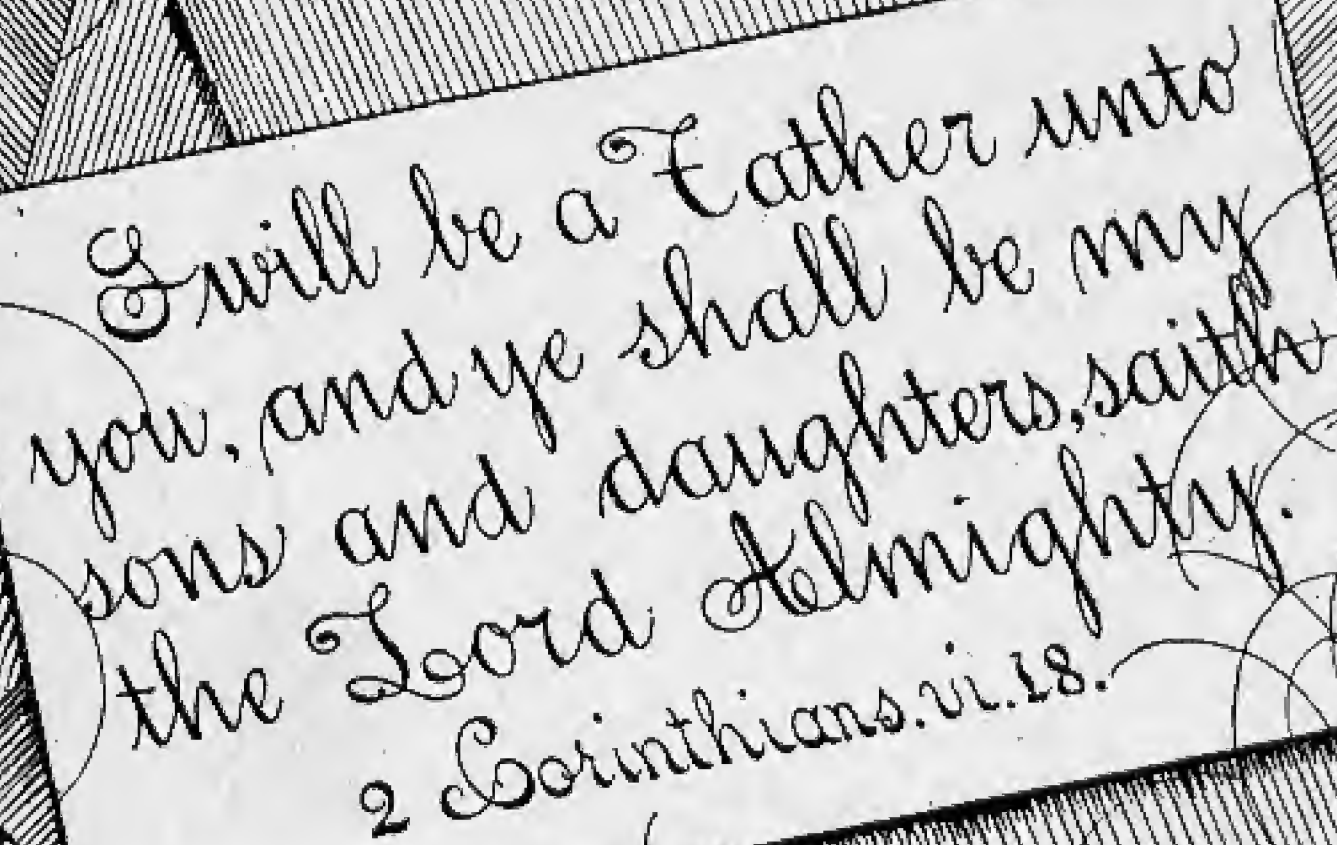 I will be a Father unto
you, and ye shall be my
sons and daughters, saith
the Lord Almighty.
2 Corinthians. vi. 18.